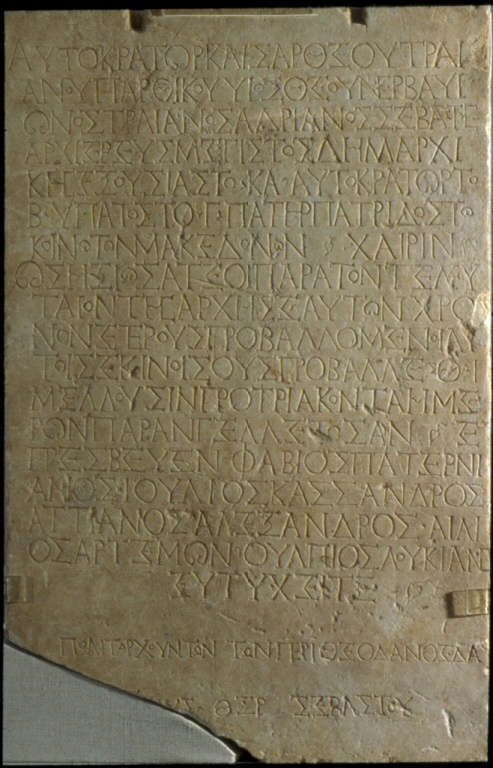 ΑΥΤΟΚΡΑΤΩΡΚΑΙΣΑΡΘΕΟΥΤΡΑΙ
ΑΝΟΥΠΑΡΘΙΚΟΥΥΙΟΣΘΕΟΥΝΕΡΒΑΥΙ
ΩΝΟΣΤΡΑΙΑΝΟΣΑΔΡΙΑΝΟΣ
ΑΡΧΙΕΡΕΥΣΜΕΓΙΣΤΟΣΔΗΜΑΡΧΙ
ΚΗΣΕΞΟΥΣΙΑΣΤΟΚΑΑΥΤΟΚΡΑΤΩΡΤΟ
ΒΥΠΑΤΟΣΤΟΓΠΑΤΗΡΠΑΤΡΙΔΟΣΤΩ
ΚΟΙΝΩΤΩΝΜΑΚΕΔΟΝΩΝ ΧΑΙΡΙΝ
ΩΣΗΞΙΩΣΑΤΕΟΙΠΑΡΑΤΟΝΤΕΛΕΥ
ΤΑΙΟΝΤΗΣΑΡΧΗΣΕΑΥΤΩΝΧΡΟ
ΝΟΝΕΤΕΡΟΥΣΠΡΟΒΑΛΛΟΜΕΝΟΙΑΥ
ΤΟΙΣΕΚΙΝΟΙΣΟΥΣΠΡΟΒΑΛΛΕΣΘΑΙ
ΜΕΛΛΟΥΣΙΝΠΡΟΤΡΙΑΚΟΝΤΑΗΜΕ
ΡΩΝΠΑΡΑΝΓΕΛΛΕΤΩΣΑΝ Ε
ΠΡΕΣΒΕΥΕΝ ΦΑΒΙΟΣΠΑΤΕΡΝΙ
ΑΝΟΣΙΟΥΛΙΟΣΚΑΣΣΑΝΔΡΟΣ
ΑΠΠΙΑΝΟΣΑΛΕΞΑΝΔΡΟΣΑΙΛΙ
ΟΣΑΡΤΕΜΩΝΟΥΛΠΙΟΣΛΟΥΚΙΑΝΟΣ
ΕΥΤΥΧΕΙΤΕ
ΠΟΛΙΤΑΡΧΟΥΝΤΩΝ ΤΩΝΠΕΡΙΘΕΟΔΑΝΘΕΟΔΑ
ΣΕΒΑΣΤΟΥ